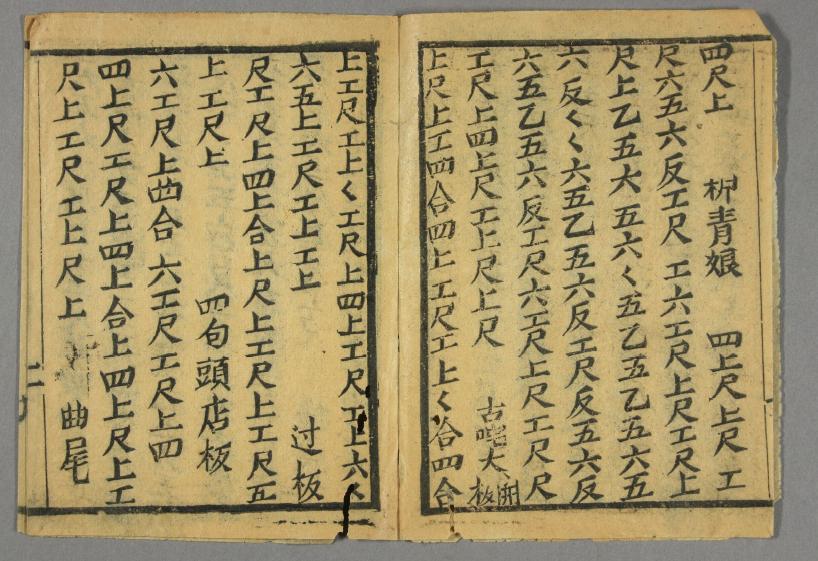 四尺上 柳青娘 四上尺上尺工
尺六五六反工尺工六工尺上尺工尺上
尺上乙五六五六く五乙五乙五六五
六反くく六五乙五六反工尺反五六反
六五乙五六反工尺六工尺上尺工尺尺
工尺上四上尺工上尺上尺 古 大板
上尺上工四合四上工尺工上く合四合
上工尺工上く工尺上四上工尺工上六く
六五上工尺工上工上 过板
尺工尺上四上合上尺上工尺上工尺五
上工尺上 四句頭店板
六工尺上四合六工尺工尺上四
四上尺工尺上四上合上四上尺上工
尺上工尺工上尺上 曲尾